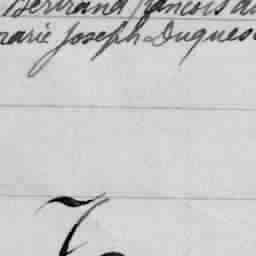 Bertrand francois
marie Joseph Duques